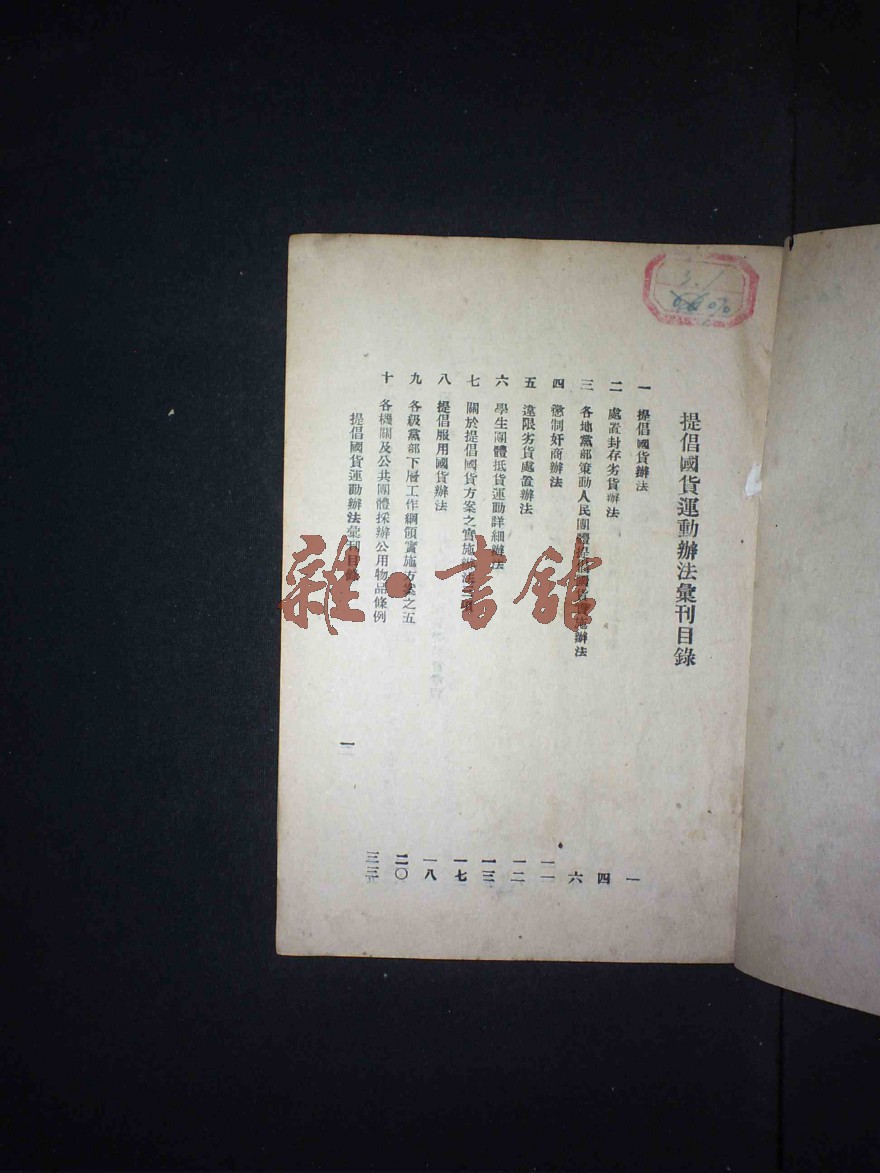 提倡國貨運動辦法彙刊目錄
一 提倡國貨辦法 一
二 處置封存劣貨辦法 四
三 各地黨部策動人民團體提倡國貨實施辦法 六
四 懲制奸商辦法 一一
五 違限劣貨處置辦法 一二
六 學生團體抵貨運動詳細辦法 一三
七 關於提倡國貨方案之實施辦法三項 一七
八 提倡服用國貨辦法 一八
九 各級黨部下層工作綱領實施方案之五 二〇
十 各機關及公共團體採辦公用物品條例
提倡國貨運動辦法彙刊目錄 一
雜·書館